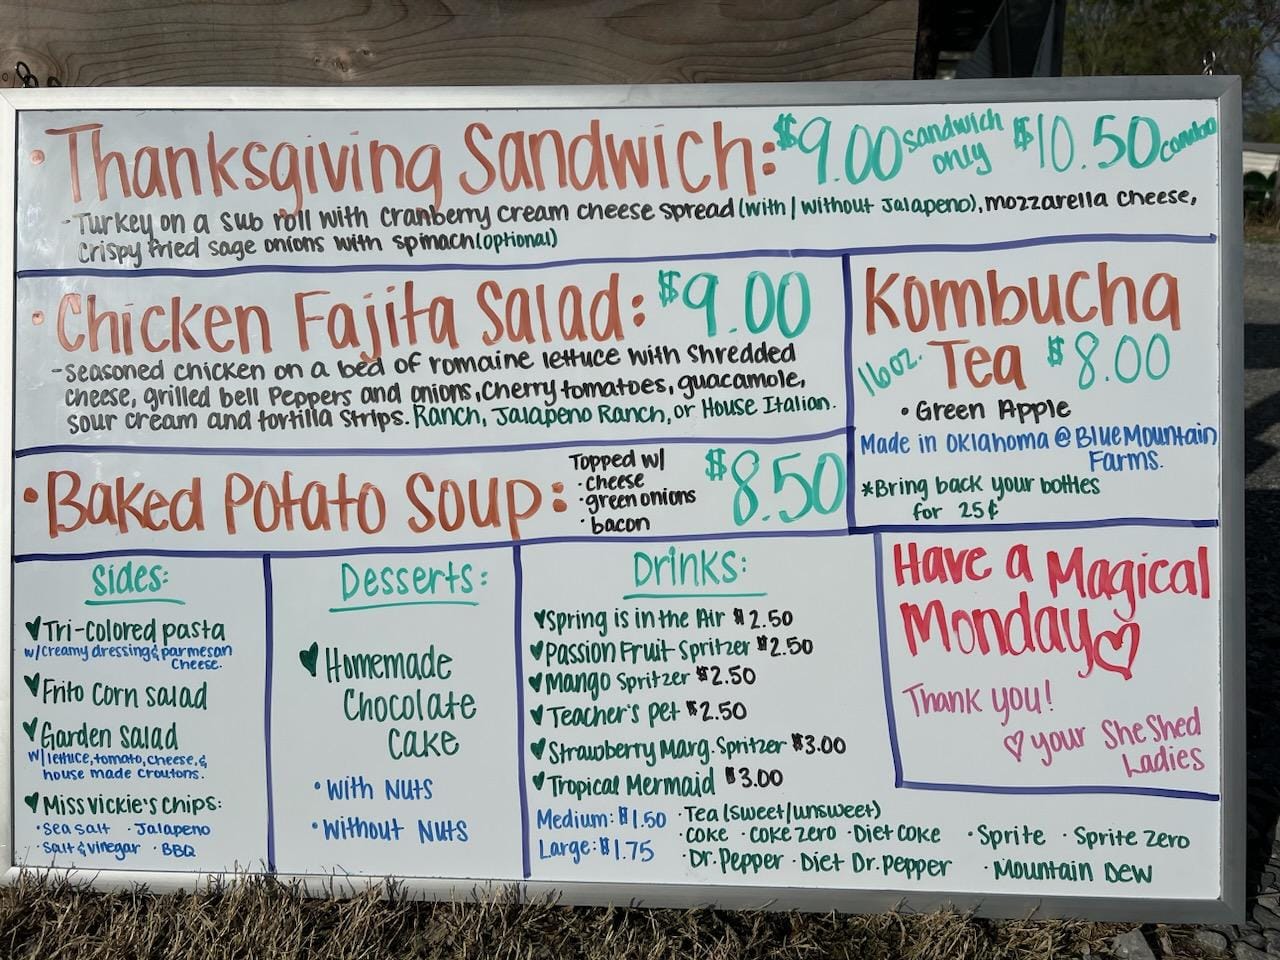 • Thanksgiving Sandwich: $9.00 sandwich only $10.50 combo
- Turkey on a sub roll with cranberry cream cheese spread (with / without Jalapeno), mozzarella cheese,
crispy fried sage onions with spinach (optional)
• Chicken Fajita Salad: $9.00
- seasoned chicken on a bed of romaine lettuce with shredded
cheese, grilled bell peppers and onions, cherry tomatoes, guacamole,
sour cream and tortilla strips. Ranch, Jalapeno Ranch, or House Italian.
• Baked Potato Soup: $8.50
Topped w/
· cheese
· green onions
· bacon
Kombucha
16oz. Tea $8.00
• Green Apple
Made in Oklahoma @ Blue Mountain
Farms.
*Bring back your bottles
for 25¢
Sides:
♥ Tri-colored pasta
w/creamy dressing & parmesan
cheese.
♥ Frito Corn salad
♥ Garden salad
w/lettuce, tomato, cheese, &
house made croutons.
♥ Miss Vickie's Chips:
· sea salt · Jalapeno
· salt & vinegar · BBQ
Desserts:
♥ Homemade
Chocolate
cake
• With Nuts
• Without Nuts
Drinks:
♥ Spring is in the Air $2.50
♥ Passion Fruit Spritzer $2.50
♥ Mango Spritzer $2.50
♥ Teacher's pet $2.50
♥ Strawberry Marg. Spritzer $3.00
♥ Tropical Mermaid $3.00
Medium: $1.50
Large: $1.75
· Tea (sweet/unsweet)
· coke · coke zero · Diet coke · Sprite · Sprite zero
· Dr. Pepper · Diet Dr. Pepper · Mountain Dew
Have a Magical
Monday ♡
Thank you!
♡ your SheShed
Ladies